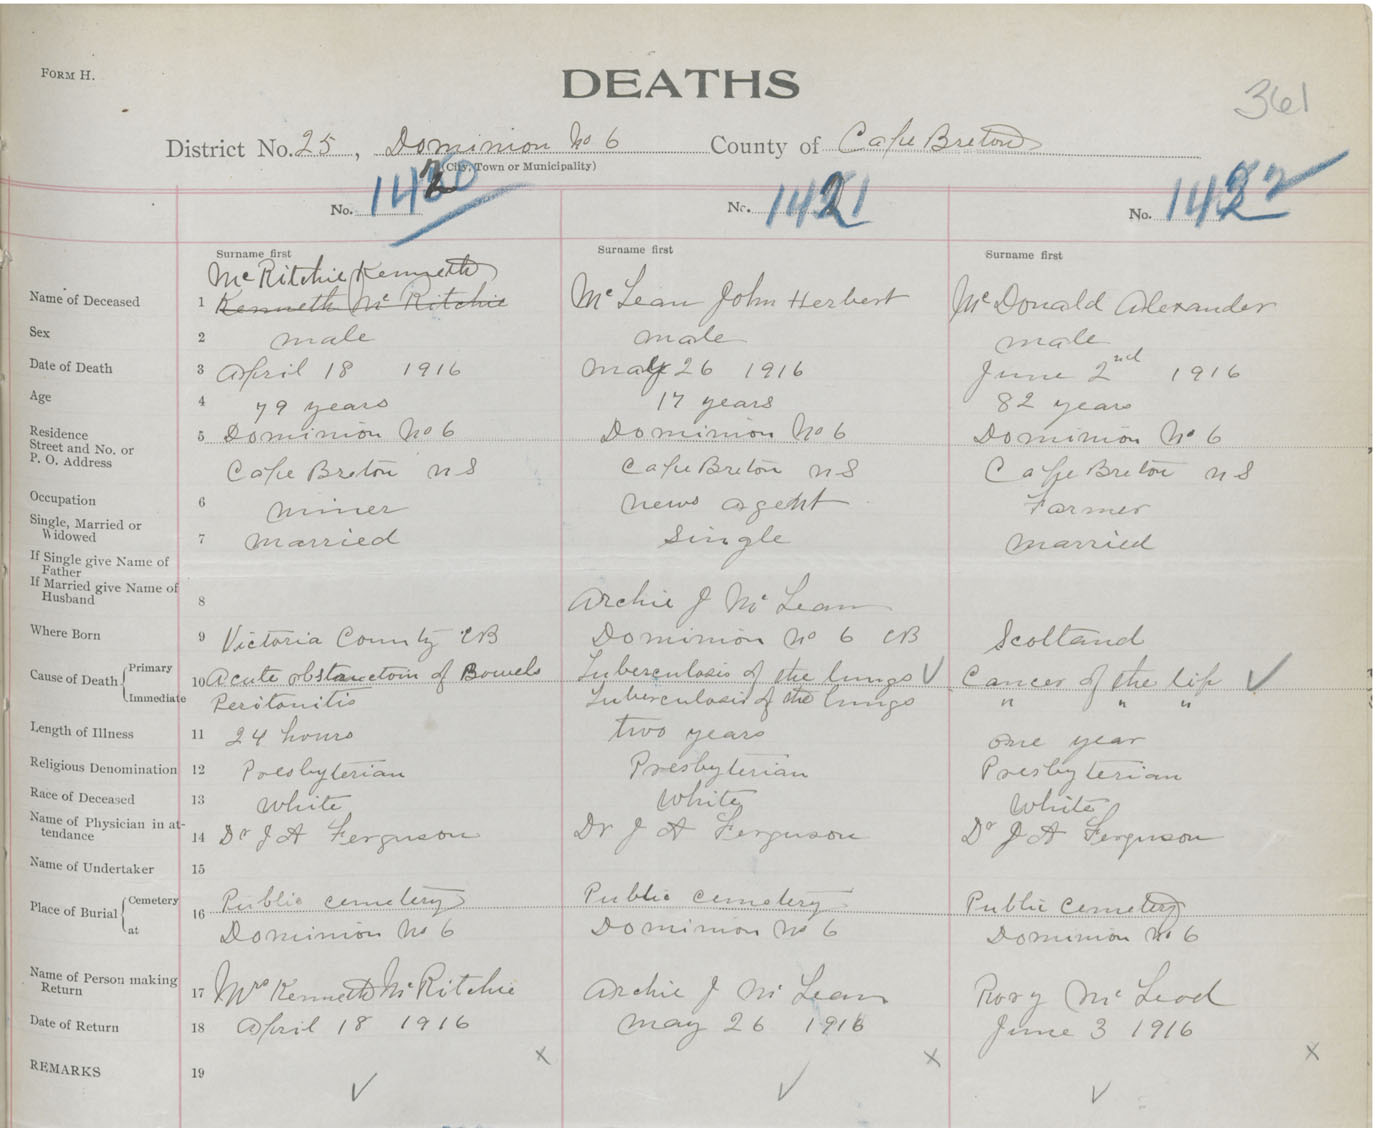 FORM H.
DEATHS
361
District No. 25, Dominion No 6 County of Cape Breton
(City, Town or Municipality)
No. 1420 No. 1421 No. 1422
Surname first Surname first Surname first
Mc Ritchie Kenneth
Name of Deceased 1 Kenneth Mc Ritchie Mc Lean John Herbert Mc Donald Alexander
Sex 2 male male male
Date of Death 3 April 18 1916 May 26 1916 June 2nd 1916
Age 4 79 years 17 years 82 years
Residence 5 Dominion No 6 Dominion No 6 Dominion No 6
Street and No. or
P. O. Address Cape Breton NS Cape Breton NS Cape Breton NS
Occupation 6 miner news agent Farmer
Single, Married or
Widowed 7 married Single married
If Single give Name of
Father
If Married give Name of
Husband 8 Archie J Mc Lean
Where Born 9 Victoria County CB Dominion No 6 CB Scotland
Cause of Death { Primary 10 Acute obstanctoin of Bowels Tuberculosis of the lungs ✓ Cancer of the lip ✓
Immediate Peritonitis Tuberculosis of the lungs " " "
Length of Illness 11 24 hours two years one year
Religious Denomination 12 Presbyterian Presbyterian Presbyterian
Race of Deceased 13 White White White
Name of Physician in at-
tendance 14 Dr J A Ferguson Dr J A Ferguson Dr J A Ferguson
Name of Undertaker 15
Place of Burial { Cemetery 16 Public cemetery Public cemetery Public cemetery
at Dominion No 6 Dominion No 6 Dominion No 6
Name of Person making
Return 17 Mrs Kenneth Mc Ritchie Archie J Mc Lean Rory Mc Leod
Date of Return 18 April 18 1916 May 26 1916 June 3 1916
x x x
REMARKS 19
✓ ✓ ✓